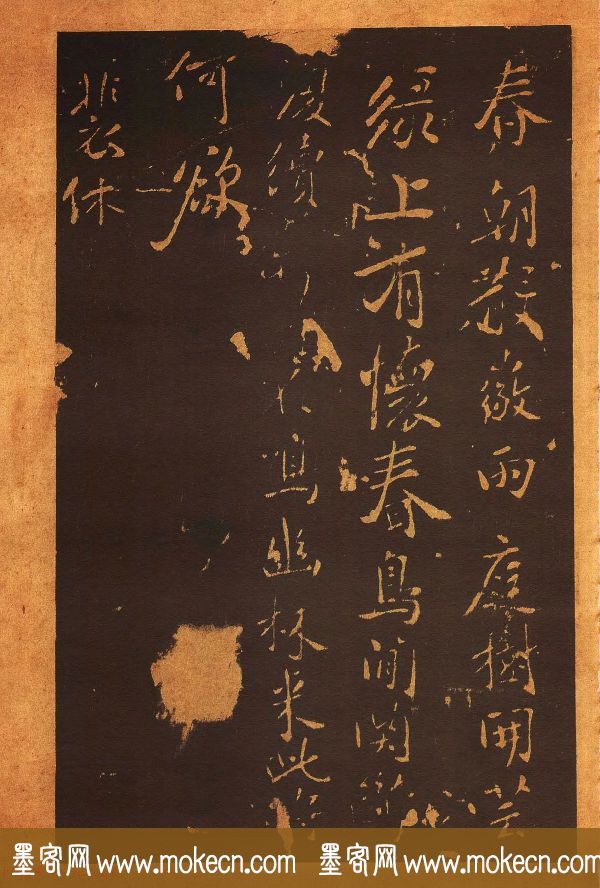 春朝散微雨庭樹開芸
綠上有懷春鳥間関
復續鳴幽林來此將
何欲
裴休
墨客网 www.mokecn.com 墨客网 www.mokecn.com